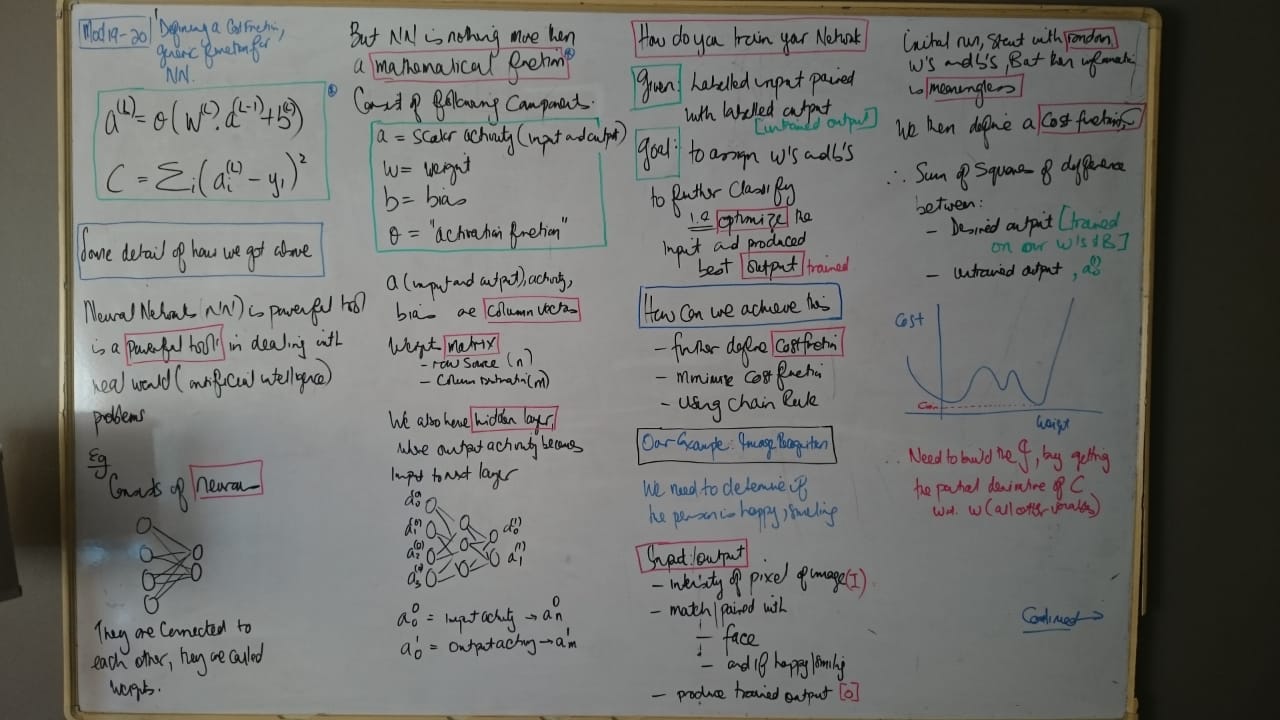 Mod 19-20
Defining a Cost Function,
generic function for
NN.
a^(L) = σ(W^(L). a^(L-1) + b^(L))
C = Σi(ai^(L) - yi)²
Some detail of how we got above
Neural Network (NN) is powerful tool
is a powerful tool in dealing with
real world (artificial intelligence)
problems
Eg
Consists of neuron
They are Connected to
each other, they are called
weights.
But NN is nothing more than
a mathematical function
Consist of following Components.
a = scalar activity (input and output)
W = weight
b = bias
σ = "activation function"
a (input and output), activity,
bias are column vectors
Weight matrix
- row source (n)
- Column destination (m)
We also have hidden layer,
where output activity becomes
Input to next layer
a0^0 = Input activity → an^0
a0^1 = Output activity → am^1
How do you train your Network
Given: Labelled input paired
with labelled output
[untrained output]
Goal: to assign w's and b's
to further Classify
i.e optimize the
input and produced
best output trained
How Can we achieve this
- further define Cost function
- Minimise Cost function
- Using Chain Rule
Our Example: Image Recognition
We need to determine if
the person is happy, smiling
Input/output
- intensity of pixel of image (I)
- match/paired with
- face
- and if happy/smiling
- produce trained output [O]
Initial run, start with random
w's and b's, But then information
is meaningless
We then define a Cost function,
∴ Sum of Squares of difference
between:
- Desired output [trained
on our W's & B]
- untrained output,
Cost
Weight
Need to build the, by getting
the partial derivative of C
w.r.t. w (all other variables)
Continued →